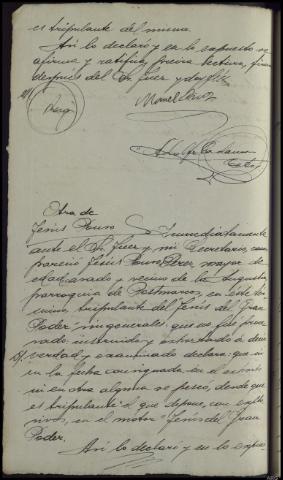 es tripulante del mismo.
Así lo declaró y en lo expuesto se
afirma y ratifica previa lectura, firma
después del Sr Juez y doy fe
Manuel
Otra de
Jesús Inmediatamente
ante el Sr Juez y mi Secretario, com
pareció Jesús Pérez, mayor de
edad, casado y vecino de la
parroquia de Postmarcos, en este tér
mino, tripulante del Jesús del Gran
Poder, sin generales, que no fue proce
sado, instruido y exhortado a decir
verdad y examinado declara: que ni
en la fecha consignada en el exhorto
ni en otra alguna se pescó, desde que
es tripulante el que depone, con explo
sivos, en el motor "Jesús del Gran
Poder.
Así lo declaró y en lo expues-